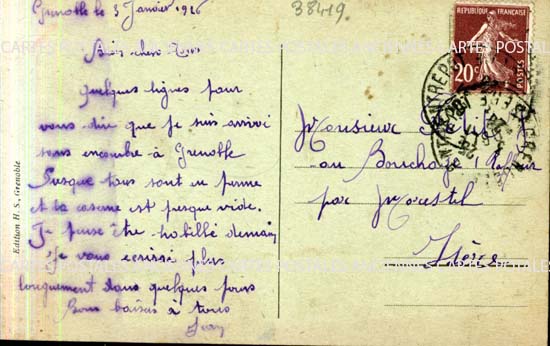 Grenoble le 3 Janvier 1926
33419.
Bien chers Tous
Quelques lignes pour
vous dire que je suis arrivé
sans encombre à Grenoble
Presque tous sont en perme
et la caserne est presque vide.
Je pense être habillé demain
Je vous écrirai plus
longuement dans quelques jours
Bons baisers à tous
Edition H. S., Grenoble
REPUBLIQUE FRANÇAISE
20c
POSTES
Monsieur
au Bouchage
par Morestel
Isère
CARTES POSTALES